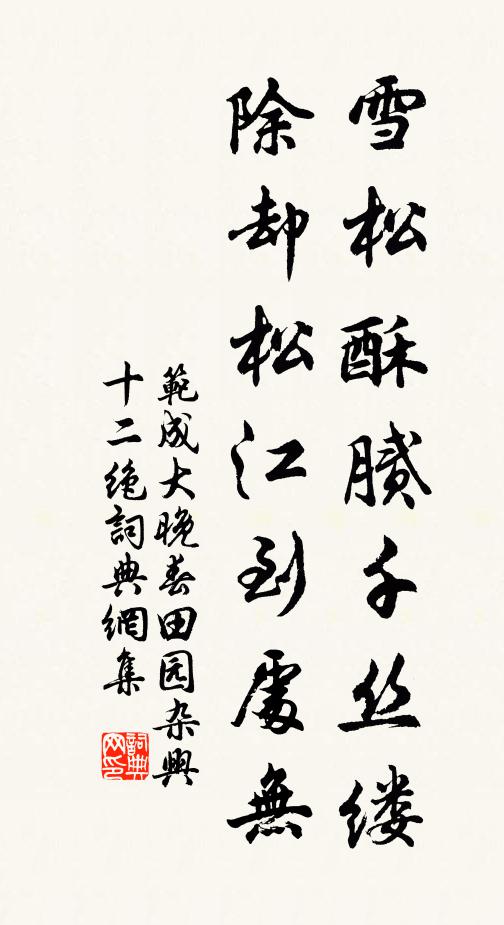 雪松酥膩千丝缕
除却松江到處無
範成大晚春田园杂興
十二绝詞典網集
詞典
网印